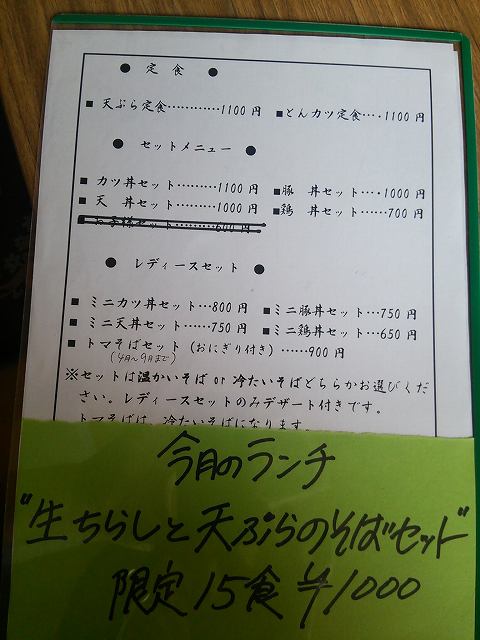 ● 定 食 ●
■ 天ぷら定食…………1100 円 ■とんカツ定食…．1100 円
● セットメニュー ●
■ カツ丼セット………1100 円 ■豚 丼セット…．1000 円
■ 天 丼セット………1000 円 ■鶏 丼セット……700 円
■ お子様セット………600 円
● レディースセット ●
■ ミニカツ丼セット…800 円 ■ミニ豚丼セット…750 円
■ ミニ天丼セット……750 円 ■ミニ鶏丼セット…650 円
■ トマそばセット（おにぎり付き）……900 円
(4月〜9月まで)
※セットは温かいそば or 冷たいそばどちらかお選びくだ
さい。レディースセットのみデザート付きです。
トマそばは、冷たいそばになります。
今月のランチ
"生ちらしと天ぷらのそばセット"
限定15食 ¥1000